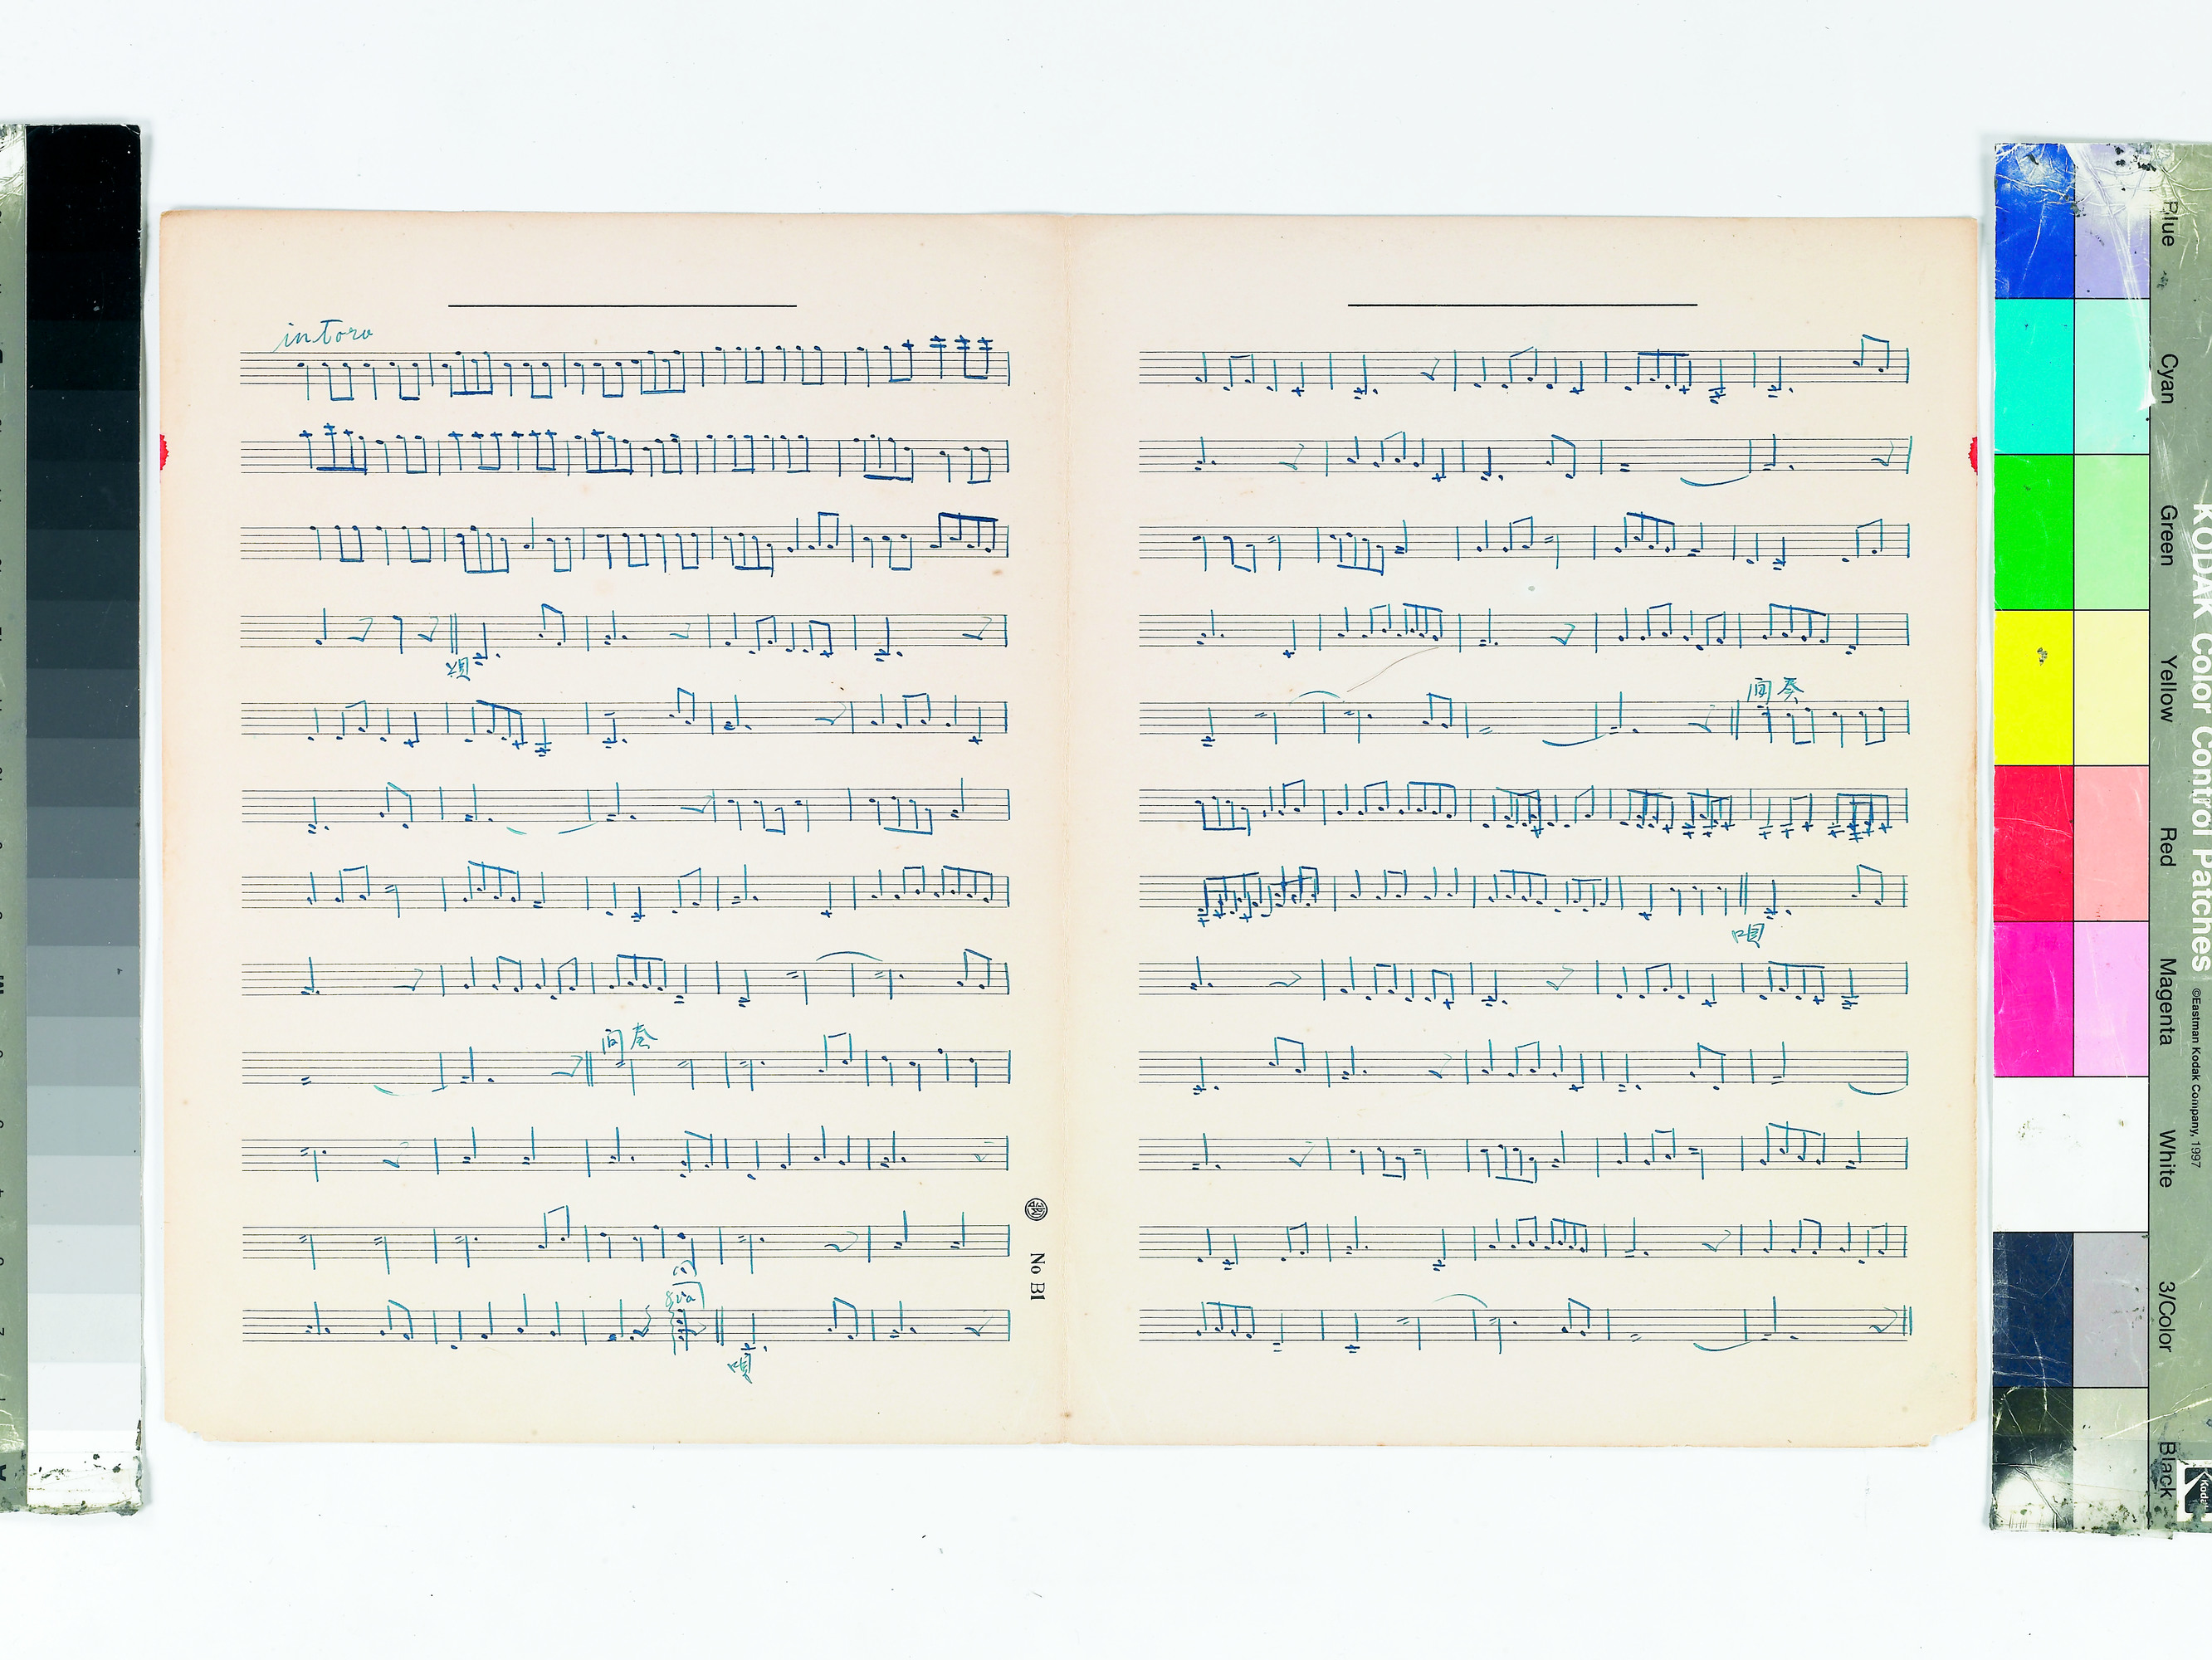 intoro
唄
間奏
8va
唄
No B1
間奏
唄
KODAK Color Control Patches
©Eastman Kodak Company, 1997
Blue
Cyan
Green
Yellow
Red
Magenta
White
3/Color
Black
Kodak